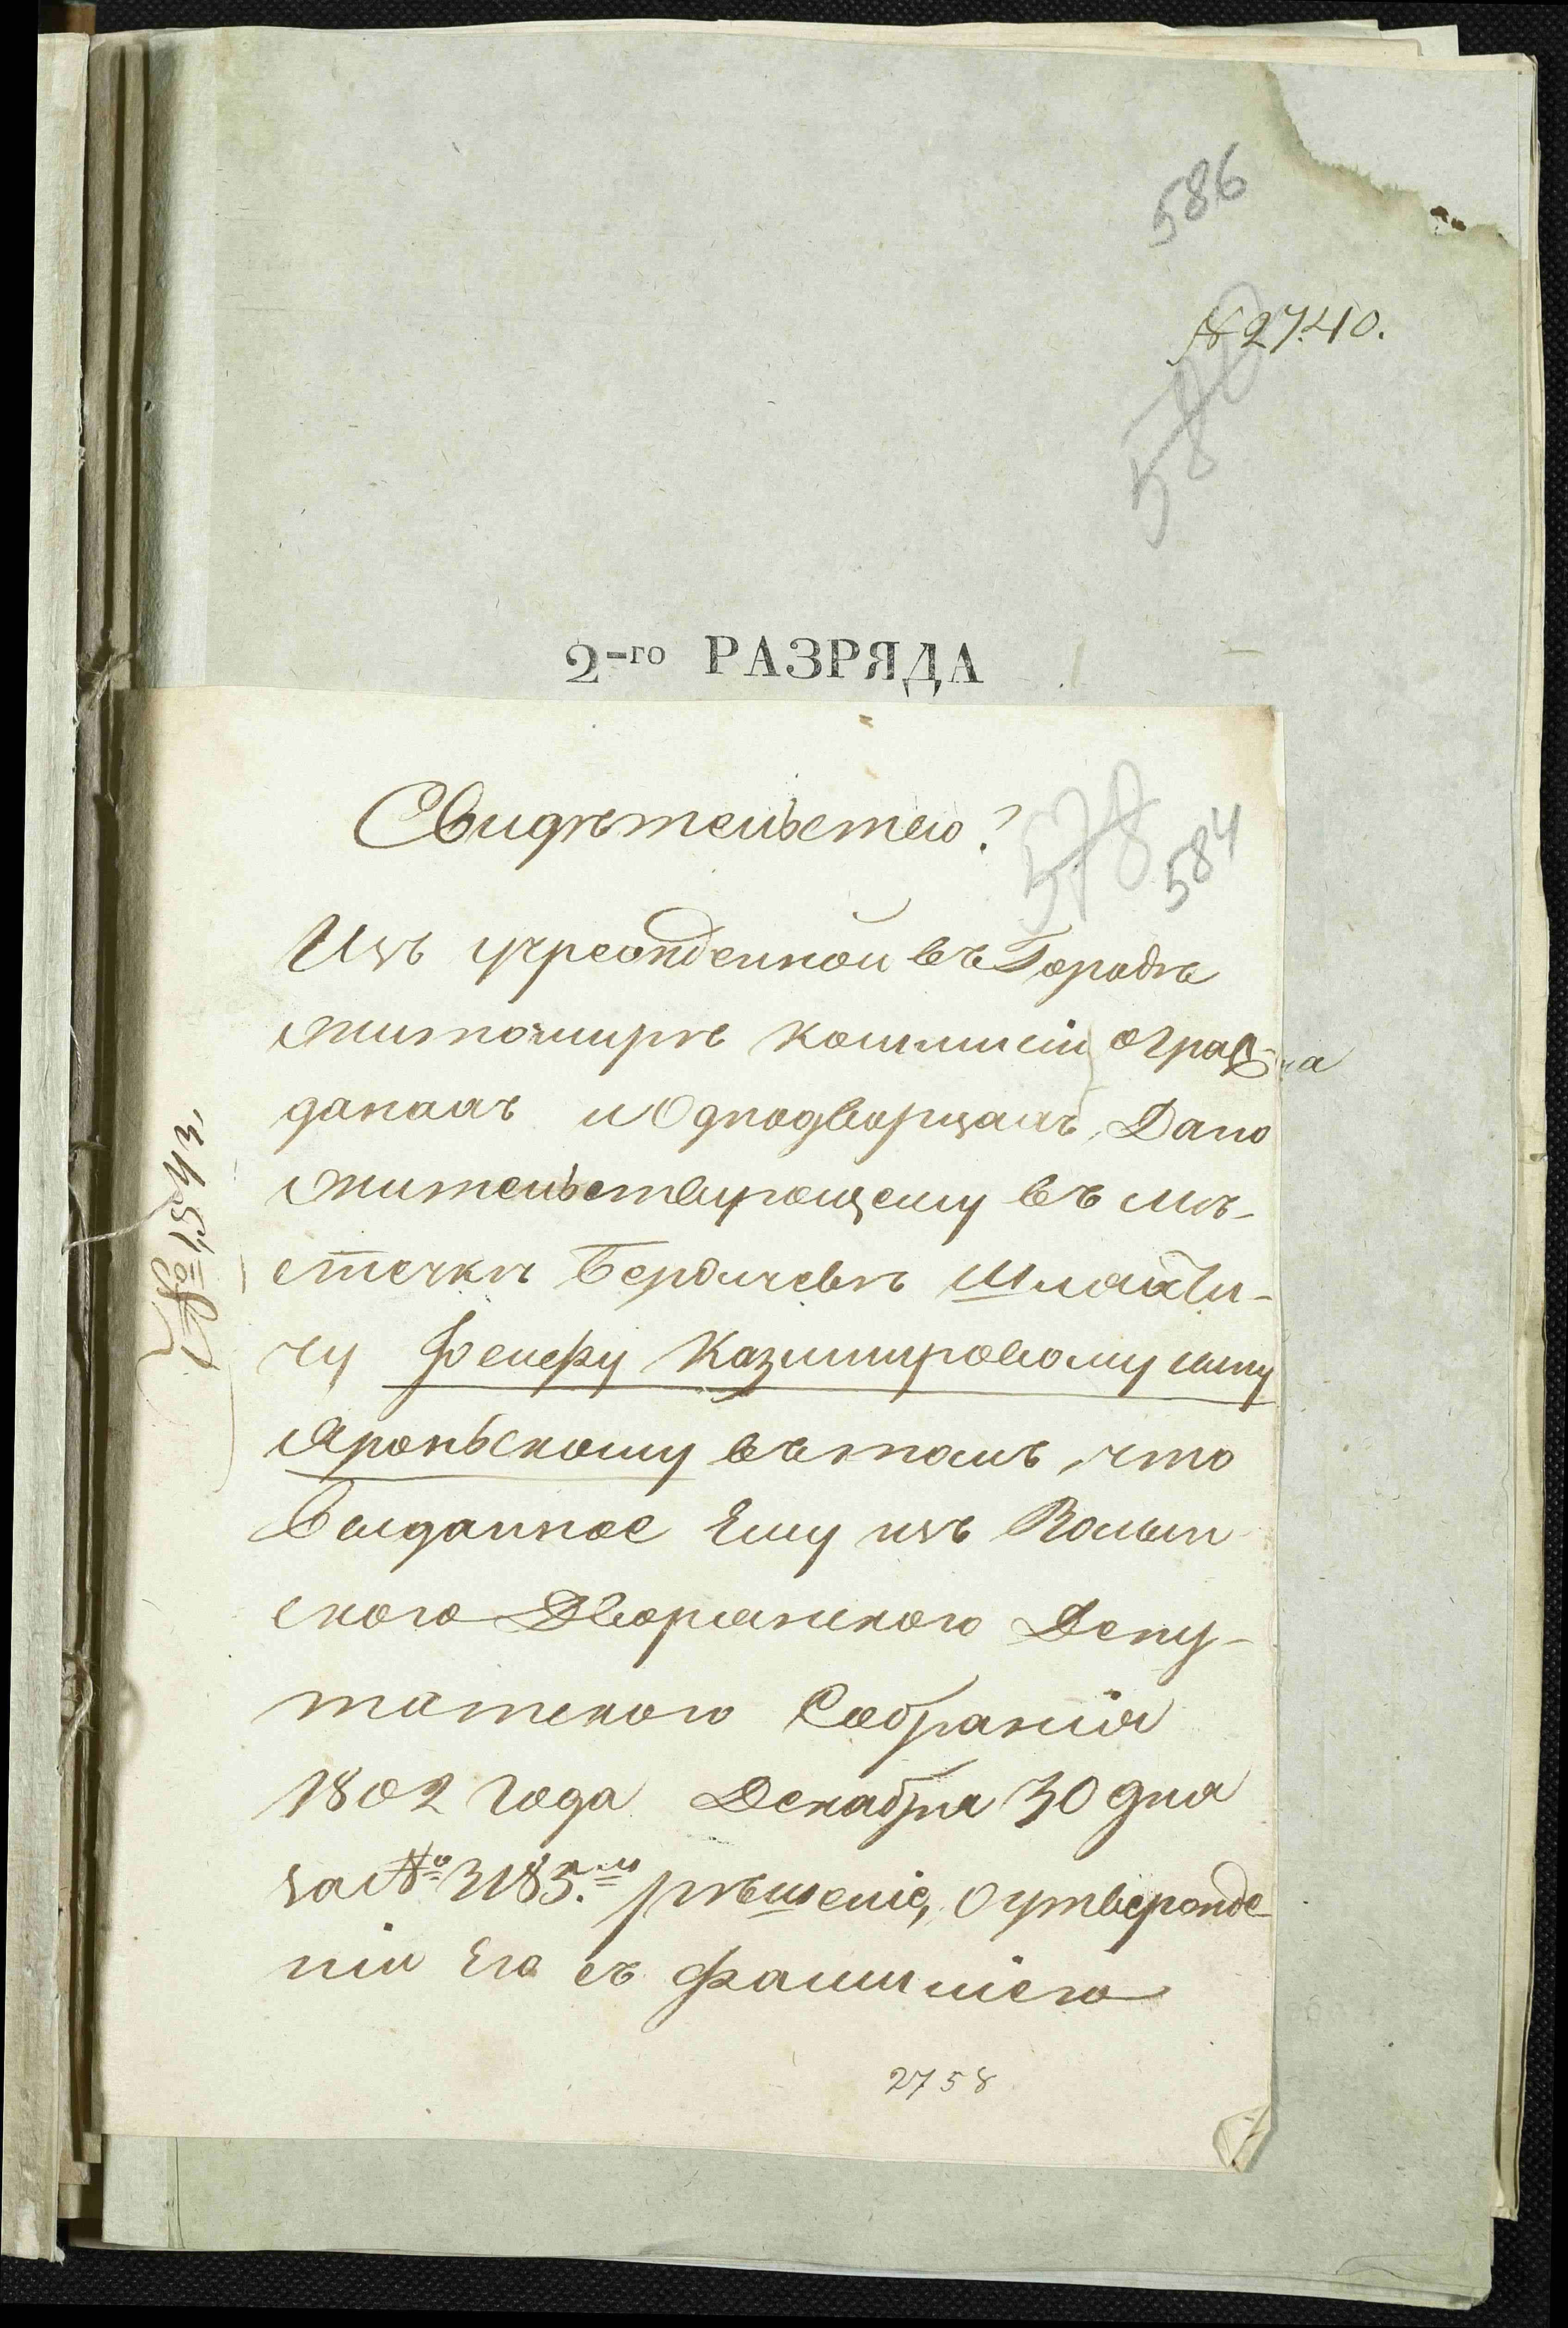 586
№ 2740.
580
2-го РАЗРЯДА
578
584
Свидѣтельство?
Изъ учрежденной въ Городѣ
Житомирѣ Коммисіи о граж-
данахъ и Однодворцахъ, Дано
жительствующему въ мѣ-
стечкѣ Бердичевѣ Шляхти-
чу Казимировому сыну
Яроньскому въ томъ, что
Выданное Ему изъ Волын
ского Дворянского Депу-
татского Собранія
1802 года Декабря 30 дня
за №º 3185.мъ рѣшеніе, О утвержде-
ніи Его съ Фамиліею
2758